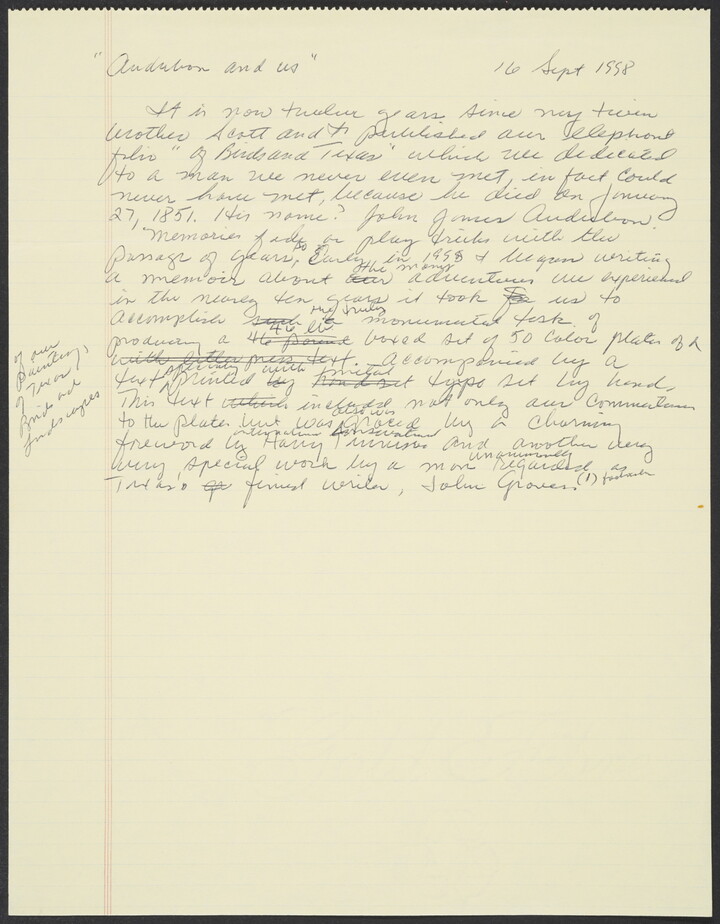 "Audubon and us"
16 Sept 1998
It is now twelve years since my twin
brother Scott and I published our elephant
folio "of Birds and Texas" which we dedicated
to a man we never even met, in fact could
never have met, because he died on January
27, 1851. His name? John James Audubon.
Memories fade or play tricks with the
passage of years, so Early in 1998 I began writing
a memoir about our the many adventures we experienced
in the nearly ten years it took for us to
accomplish such the truly monumental task of
producing a 46 pound 46 lb boxed set of 50 color plates of
with letterpress text. Accompanied by a
text specially printed by with hand set type set by hand.
This text which included not only our commentaries
to the plates but was also was graced by a charming
foreword by Harry and another very
very special work by a man unanimously regarded as
Texas's finest writer, John Graves. (1) footnote
of our
Paintings
of Texas
Birds and
landscapes